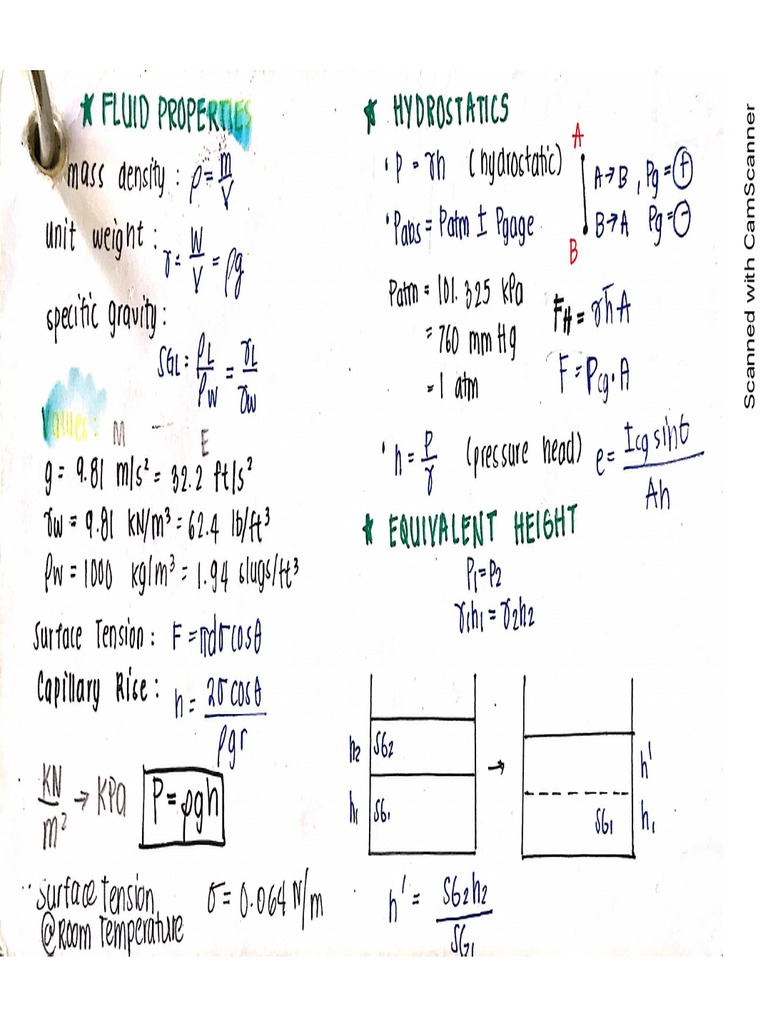 ★ FLUID PROPERTIES
mass density: ρ = m/V
unit weight: γ = W/V = ρg
specific gravity:
SGL = ρL/ρW = γL/γW
Values: M E
g = 9.81 m/s² = 32.2 ft/s²
γw = 9.81 kN/m³ = 62.4 lb/ft³
ρw = 1000 kg/m³ = 1.94 slugs/ft³
Surface Tension: F = πdσcosθ
Capillary Rise: h = 2σcosθ/ρgr
KN/m² → KPa P = ρgh
Surface tension σ = 0.064 N/m
@Room Temperature
★ HYDROSTATICS
• P = γh (hydrostatic)
• Pabs = Patm ± Pgage
A
A→B, Pg = ⊕
B→A Pg = ⊖
B
Patm = 101.325 kPa
= 760 mmHg
= 1 atm
FH = γh̅A
F = Pcg·A
• h = P/γ (pressure head) e = Icg sinθ/Ah
★ EQUIVALENT HEIGHT
P1 = P2
γ1h1 = γ2h2
h2 SG2
h1 SG1
→
h'
SG1 h1
h' = SG2h2/SG1
Scanned with CamScanner